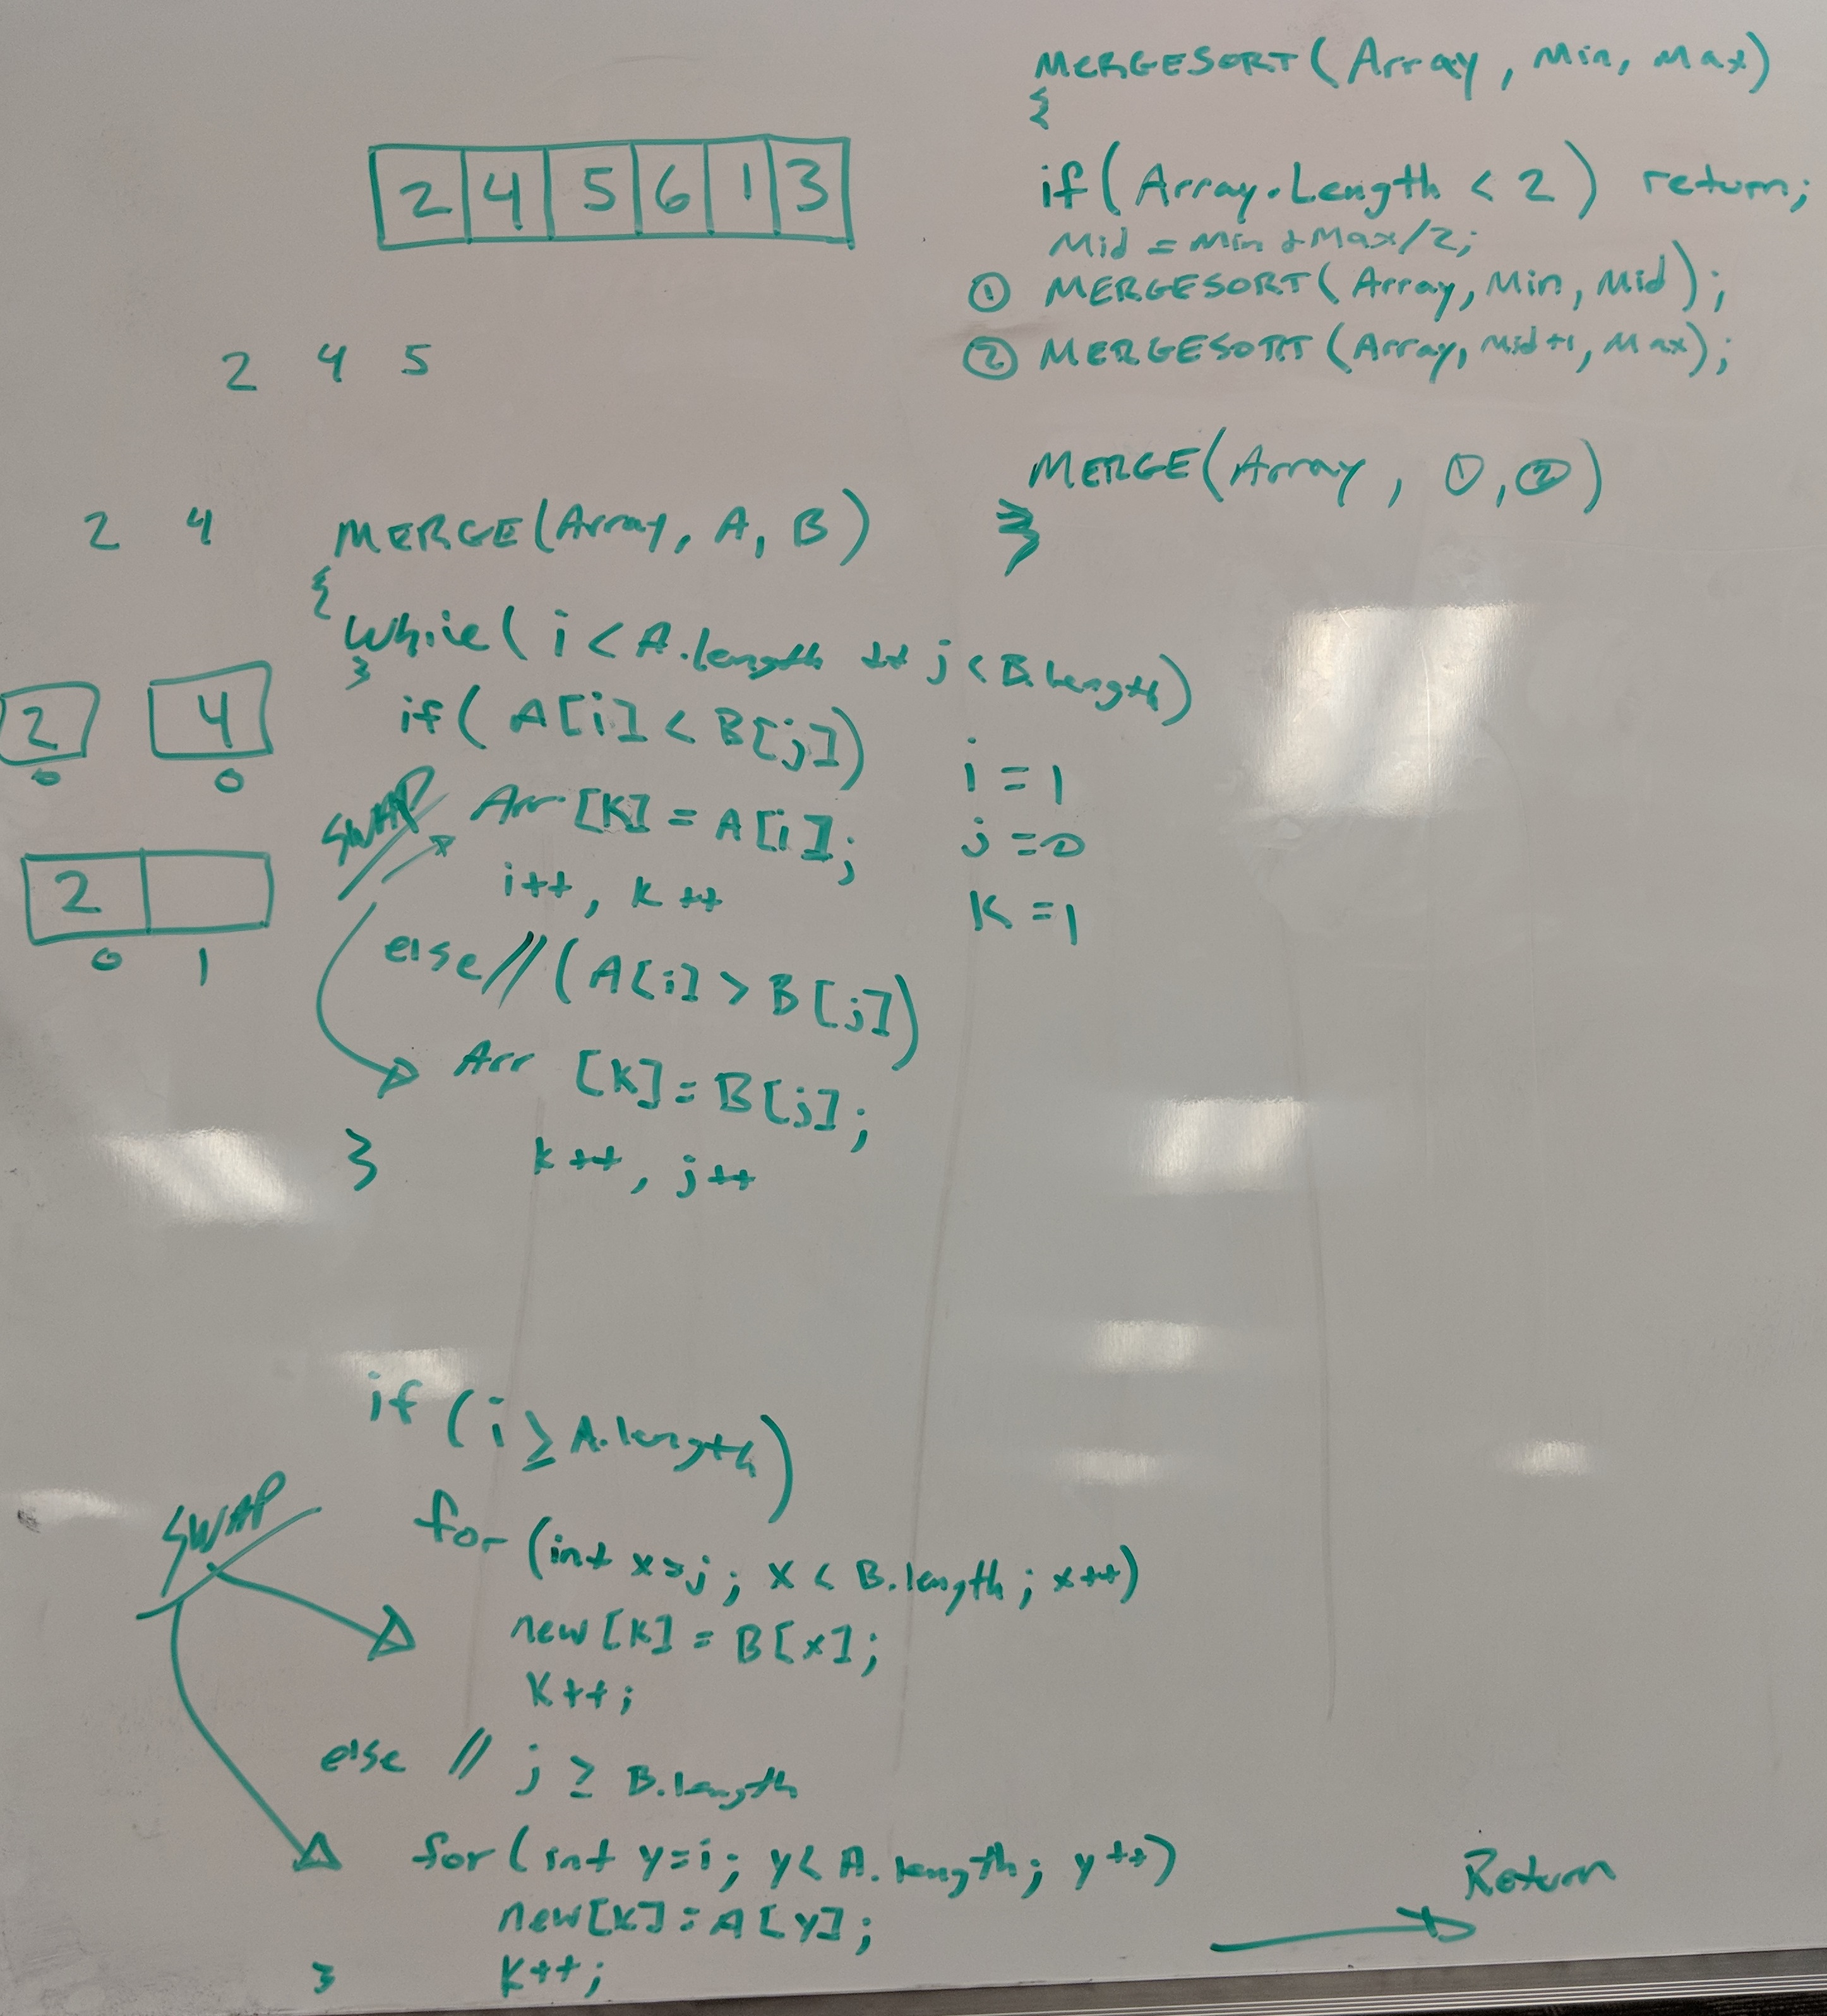 MERGESORT(Array, Min, Max)
{
if(Array.Length < 2) return;
Mid = Min + Max/2;
① MERGESORT(Array, Min, Mid);
② MERGESORT(Array, Mid+1, Max);
MERGE(Array, ①, ②)
}
2 4 5 6 1 3
2 4 5
2 4
2 4
0 0
2
0 1
MERGE(Array, A, B)
{
while( i < A.length && j < B.length)
{
if( A[i] < B[j])
SWAP
Arr[K] = A[i];
i++, k++
else//(A[i] > B[j])
Arr [K] = B[j];
} k++, j++
i = 1
j = 0
K = 1
if (i ≥ A.length)
SWAP
for (int x=j; x < B.length; x++)
new[K] = B[x];
K++;
else // j ≥ B.length
for (int y=i; y < A.length; y++)
new[K] = A[y];
} K++;
Return